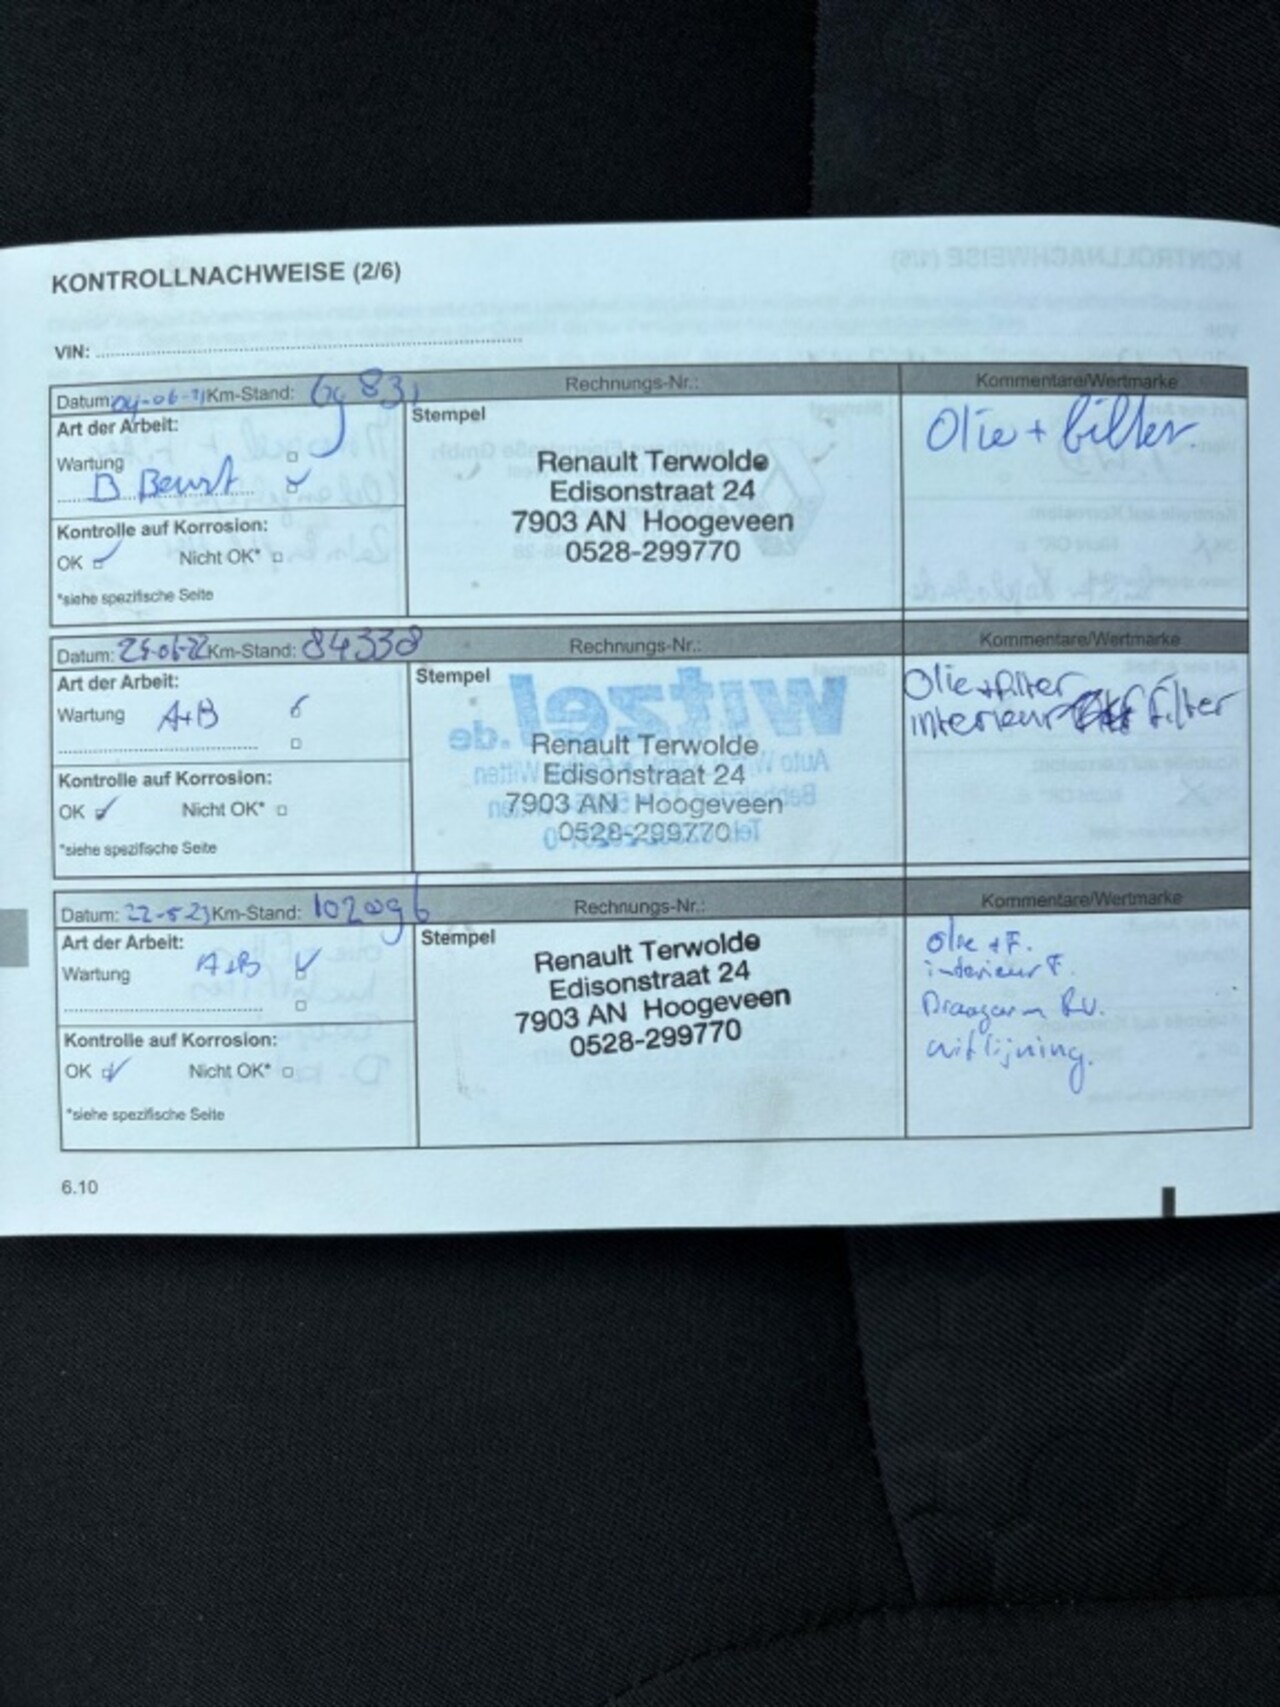 KONTROLLNACHWEISE (2/6)
VIN:
Datum: 04-06-21 Km-Stand: Rechnungs-Nr.: Kommentare/Wertmarke
Art der Arbeit:
Wartung
B Beurt
Kontrolle auf Korrosion:
OK Nicht OK*
*siehe spezifische Seite
Stempel
Renault Terwolde
Edisonstraat 24
7903 AN Hoogeveen
0528-299770
Olie + filter
Datum: 25-06-22 Km-Stand: 84338 Rechnungs-Nr.: Kommentare/Wertmarke
Art der Arbeit:
Wartung A+B
Kontrolle auf Korrosion:
OK Nicht OK*
*siehe spezifische Seite
Stempel
Renault Terwolde
Edisonstraat 24
7903 AN Hoogeveen
0528-299770
Olie + filter
interieur filter
Datum: 22-5-23 Km-Stand: 102096 Rechnungs-Nr.: Kommentare/Wertmarke
Art der Arbeit:
Wartung A+B
Kontrolle auf Korrosion:
OK Nicht OK*
*siehe spezifische Seite
Stempel
Renault Terwolde
Edisonstraat 24
7903 AN Hoogeveen
0528-299770
Olie + F.
interieur F.
Draagarm R.V.
uitlijning.
6.10